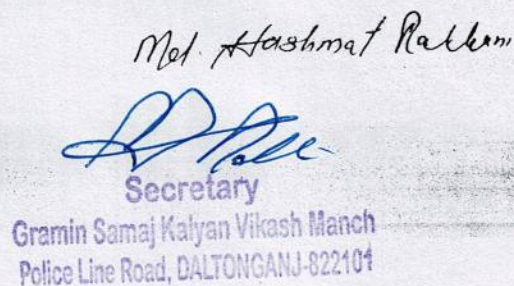 Md. Hashmat Rabbani
Secretary
Gramin Samaj Kalyan Vikash Manch
Police Line Road, DALTONGANJ-822101